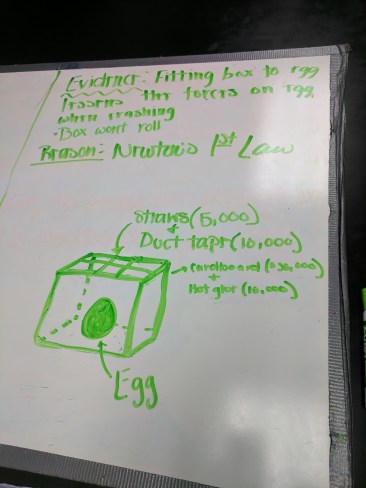 Evidence: Fitting box to egg
lessens the forces on egg
when crashing
-Box wont roll
Reason: Newton's 1st Law
Straws (5,000)
+
Duct tape (10,000)
Cardboard
+
Hot glue (10,000)
Egg